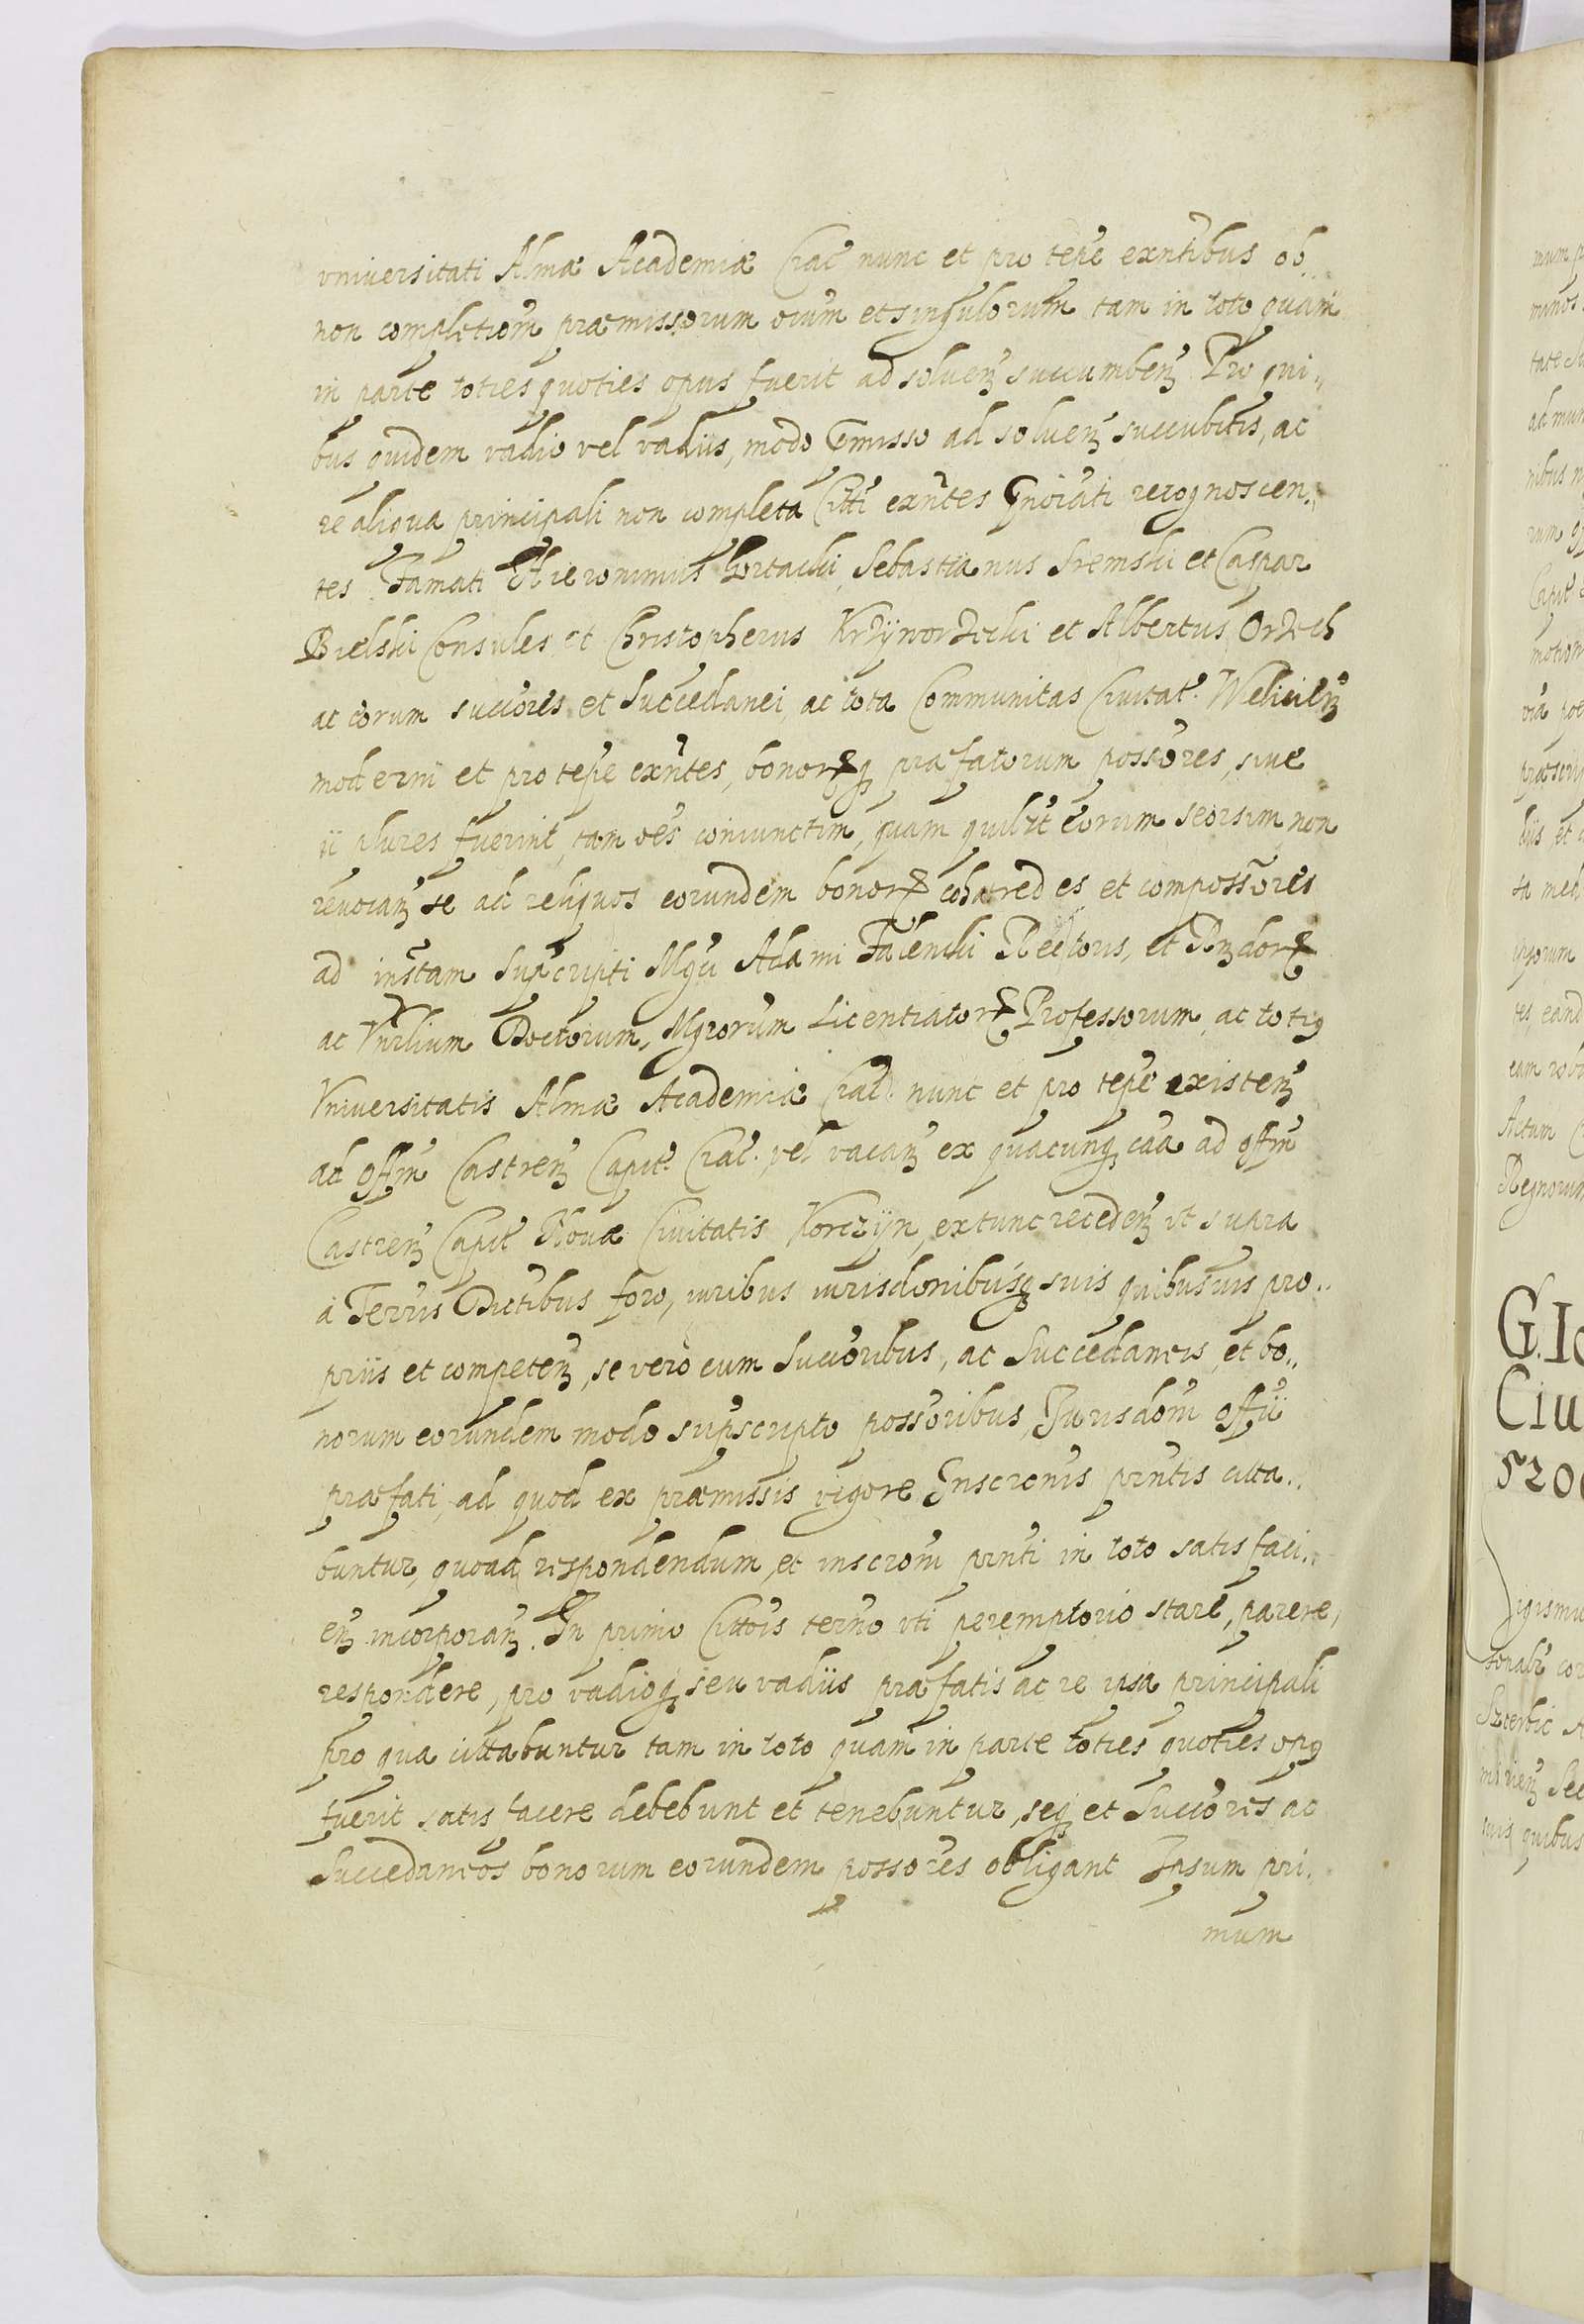 vniversitati Almæ Academiæ Crac̄ nunc et pro tēpe exn̄tibus ob..
non completiom̄ præmissorum oium̄ et singulorum tam in toto quam
in parte toties quoties opus fuerit ad soluenꝫ succumbenꝫ Pro qui„
bus quidem vadio vel vadiis, modo Pmisso ad soluenꝫ succubitis, ac
re aliqua principali non completa Citti exn̄tes Pnoiati recognoscen„
tes Famati Hieronimus Gortacki, Sebastianus Sremski et Caspar
Bielski Consules et Christopherus Krzÿworzecki et Albertus Orzech
ac eorum succōres et Succedanei, ac tota Communitas Ciuitat. Weliciēnꝫ
moderni et pro tēpe exn̄tes, bonorꝝqꝫ præfatorum possōres, siue
ii plures fuerint, tam oēs coniunctim, quam quilīt eorum seorsim non
reuocanꝫ se ad reliquos eorundem bonorꝝ cohæredes et compossōres
ad instam Supscripti Mgci Adami Falencki Rectoris, et Rꝫdorꝝ
ac Vnrlium Doctorum, Mgrorum Licentiatorꝝ Professorum, ac totiꝰ
Vniversitatis Almæ Academiæ Crac̄. nunc et pro tēpe existenꝫ
ad Offm̄ Castrenꝫ Capit̄. Crac̄. vel vacanꝫ ex quacunqꝫ cāa ad offm̄
Castrenꝫ Capit̄ Nouæ Ciuitatis Korczÿn, extunc recedenꝫ vt supra
à Terris Dictibus foro, iuribus iurisdonibusqꝫ suis quibusuis pro..
priis et competenꝫ, se vero cum Succōribus, ac Succedaneis, et bo..
norum eorundem modo supscripto possōribus, Jurisdōni offii
præfati, ad quod ex præmissis vigore Inscronis pn̄tis citta..
buntur, quoad respondendum, et inscroni pn̄ti in toto satisfaci..
enꝫ incorporanꝫ. In primo Cittōis termo vti peremptorio stare, parere,
respondere, pro vadioqꝫ seu vadiis præfatis ac re ipsa principali
pro qua cittabuntur tam in toto quam in parte toties quoties opꝰ
fuerit satisfacere debebunt et tenebuntur, seqꝫ et Succōres ac
Succedaneos bonorum eorundem possōres obligant Ipsum pri..
mum
G. Io
Ciu